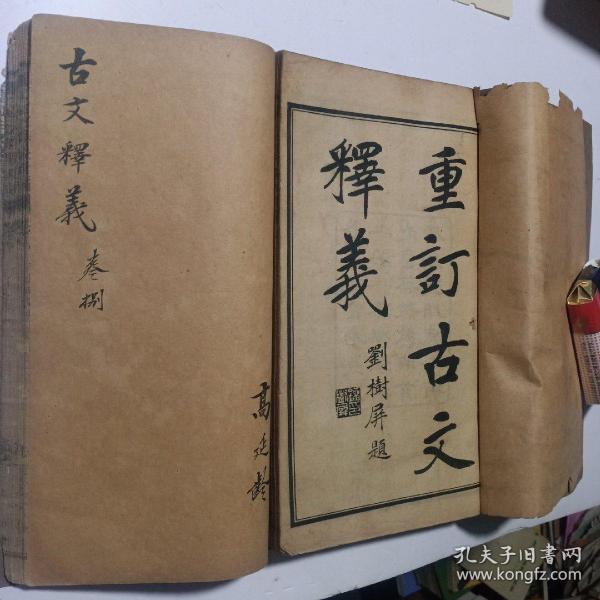 古文釋義
叁捌
高廷齡
重訂古文
釋義
劉樹屏題
孔夫子旧书网
www.kongfz.com